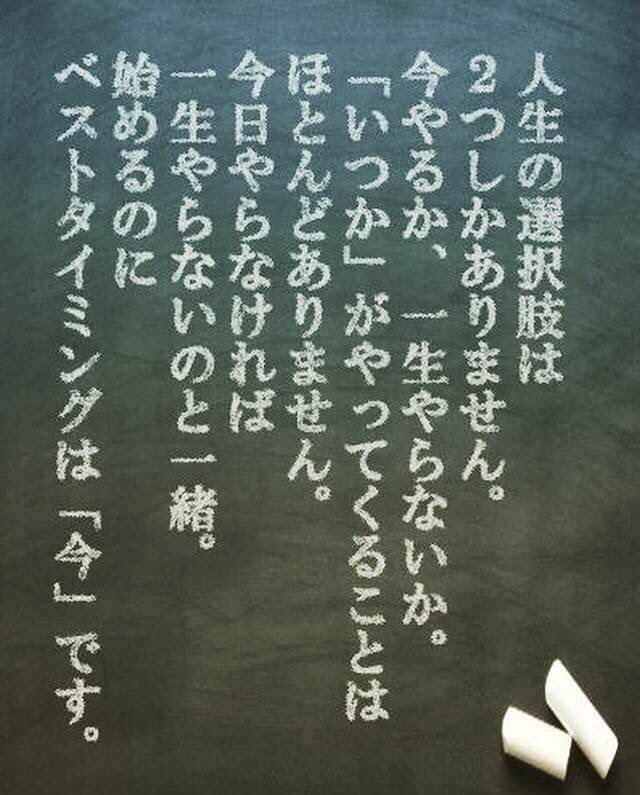 人生の選択肢は
２つしかありません。
今やるか、一生やらないか。
「いつか」がやってくることは
ほとんどありません。
今日やらなければ
一生やらないのと一緒。
始めるのに
ベストタイミングは「今」です。